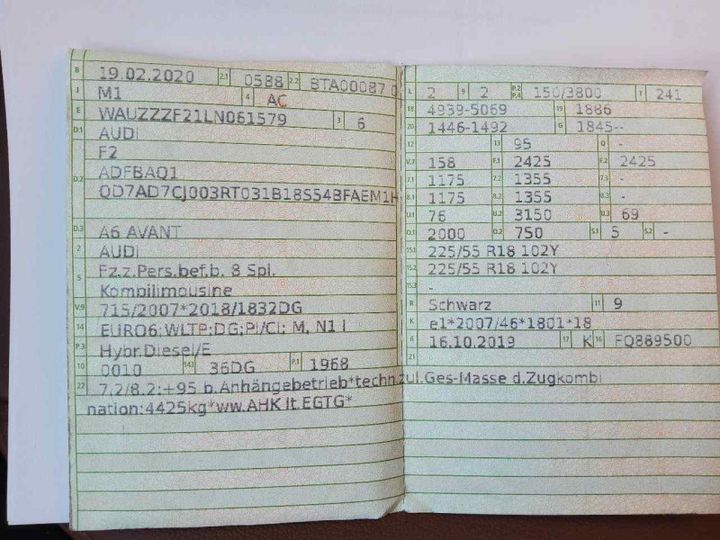 B 19.02.2020 2.1 0588 2.2 BTA00087 0
J M1 4 AC
E WAUZZZF21LN061579 3 6
D.1 AUDI
F2
D.2 ADFBAQ1
QD7AD7CJ003RT031B18S54BFAEM1H
D.3 A6 AVANT
2 AUDI
5 Fz.z.Pers.bef.b. 8 Spl.
Kombilimousine
V.9 715/2007*2018/1832DG
14 EURO6;WLTP;DG;PI/CI; M, N1 I
P.3 Hybr.Diesel/E
10 0010 14.1 36DG P.1 1968
22 7.2/8.2:+95 b.Anhängebetrieb*techn.zul.Ges-Masse d.Zugkombi
nation:4425kg*ww.AHK lt.EGTG*
L 2 9 2 P.2 P.4 150/3800 T 241
18 4939-5069 19 1886
20 1446-1492 G 1845--
12 - 13 95 Q -
V.7 158 F.1 2425 F.2 2425
7.1 1175 7.2 1355 7.3 -
8.1 1175 8.2 1355 8.3 -
U.1 76 U.2 3150 U.3 69
O.1 2000 O.2 750 S.1 5 S.2 -
15.1 225/55 R18 102Y
15.2 225/55 R18 102Y
15.3 -
R Schwarz 11 9
K e1*2007/46*1801*18
6 16.10.2019 17 K 16 FQ889500
21